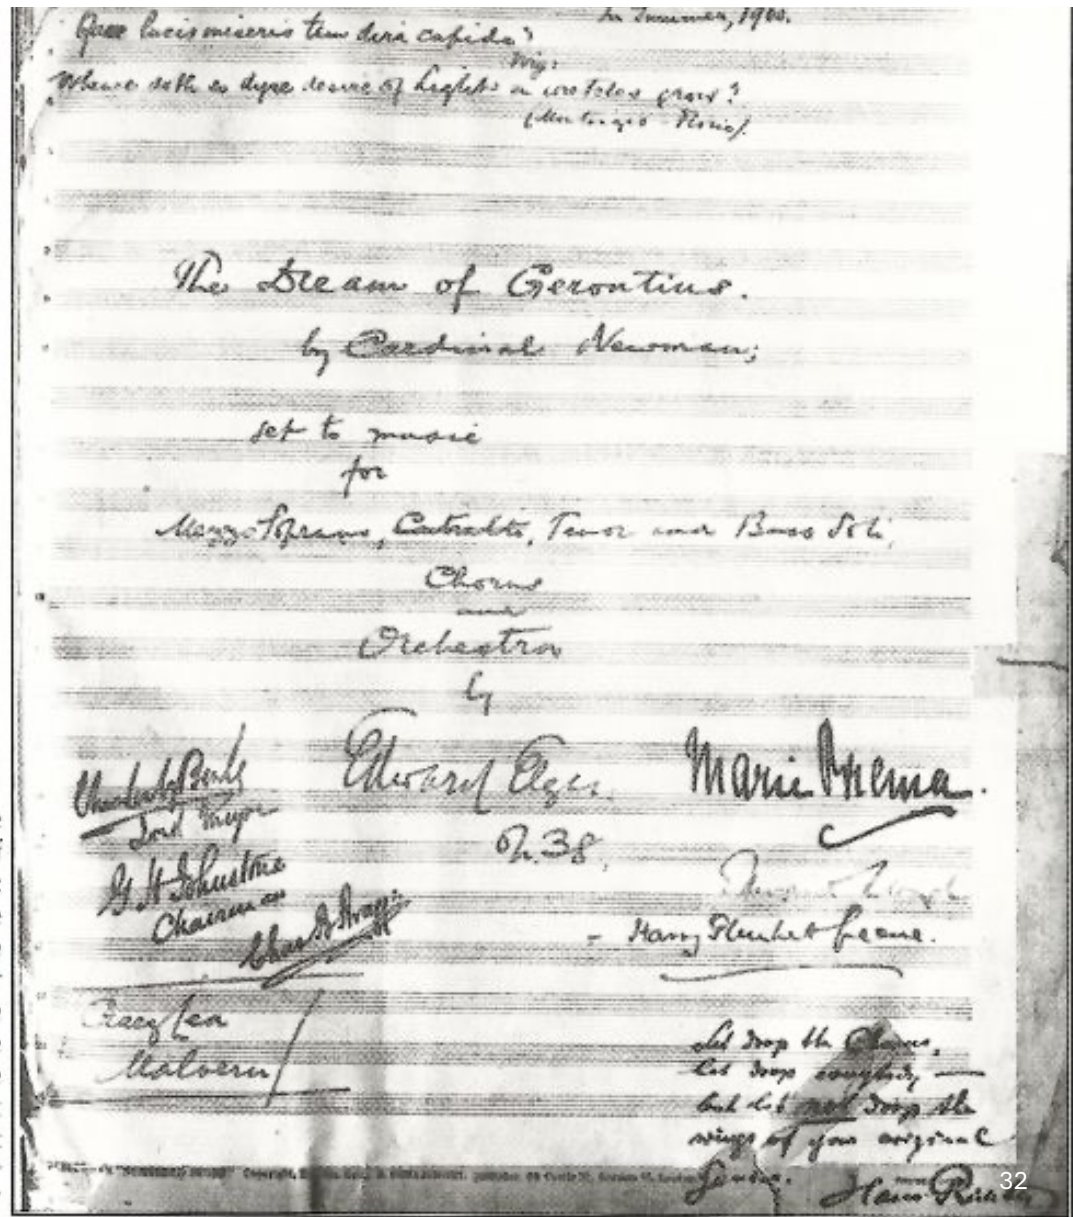 In Summer, 1900.
Quae lucis miseris tam dira cupido?
Virg:
Whence doth so dyre desire of Light on wretches grow?
(Montaigne - Florio).
The Dream of Gerontius.
by Cardinal Newman;
set to music
for
Mezzo Soprano, Contralto, Tenor and Bass Soli,
Chorus
and
Orchestra
by
Edward Elgar.
Op. 38.
Marie Brema.
Lord Mayor
G H Johnstone
Chairman
Harry Plunket Greene.
Craeg Lea
Malvern
Let drop the Chorus,
let drop everybody —
but let not drop the
wings of your original
Genius.
Hans Richter
32